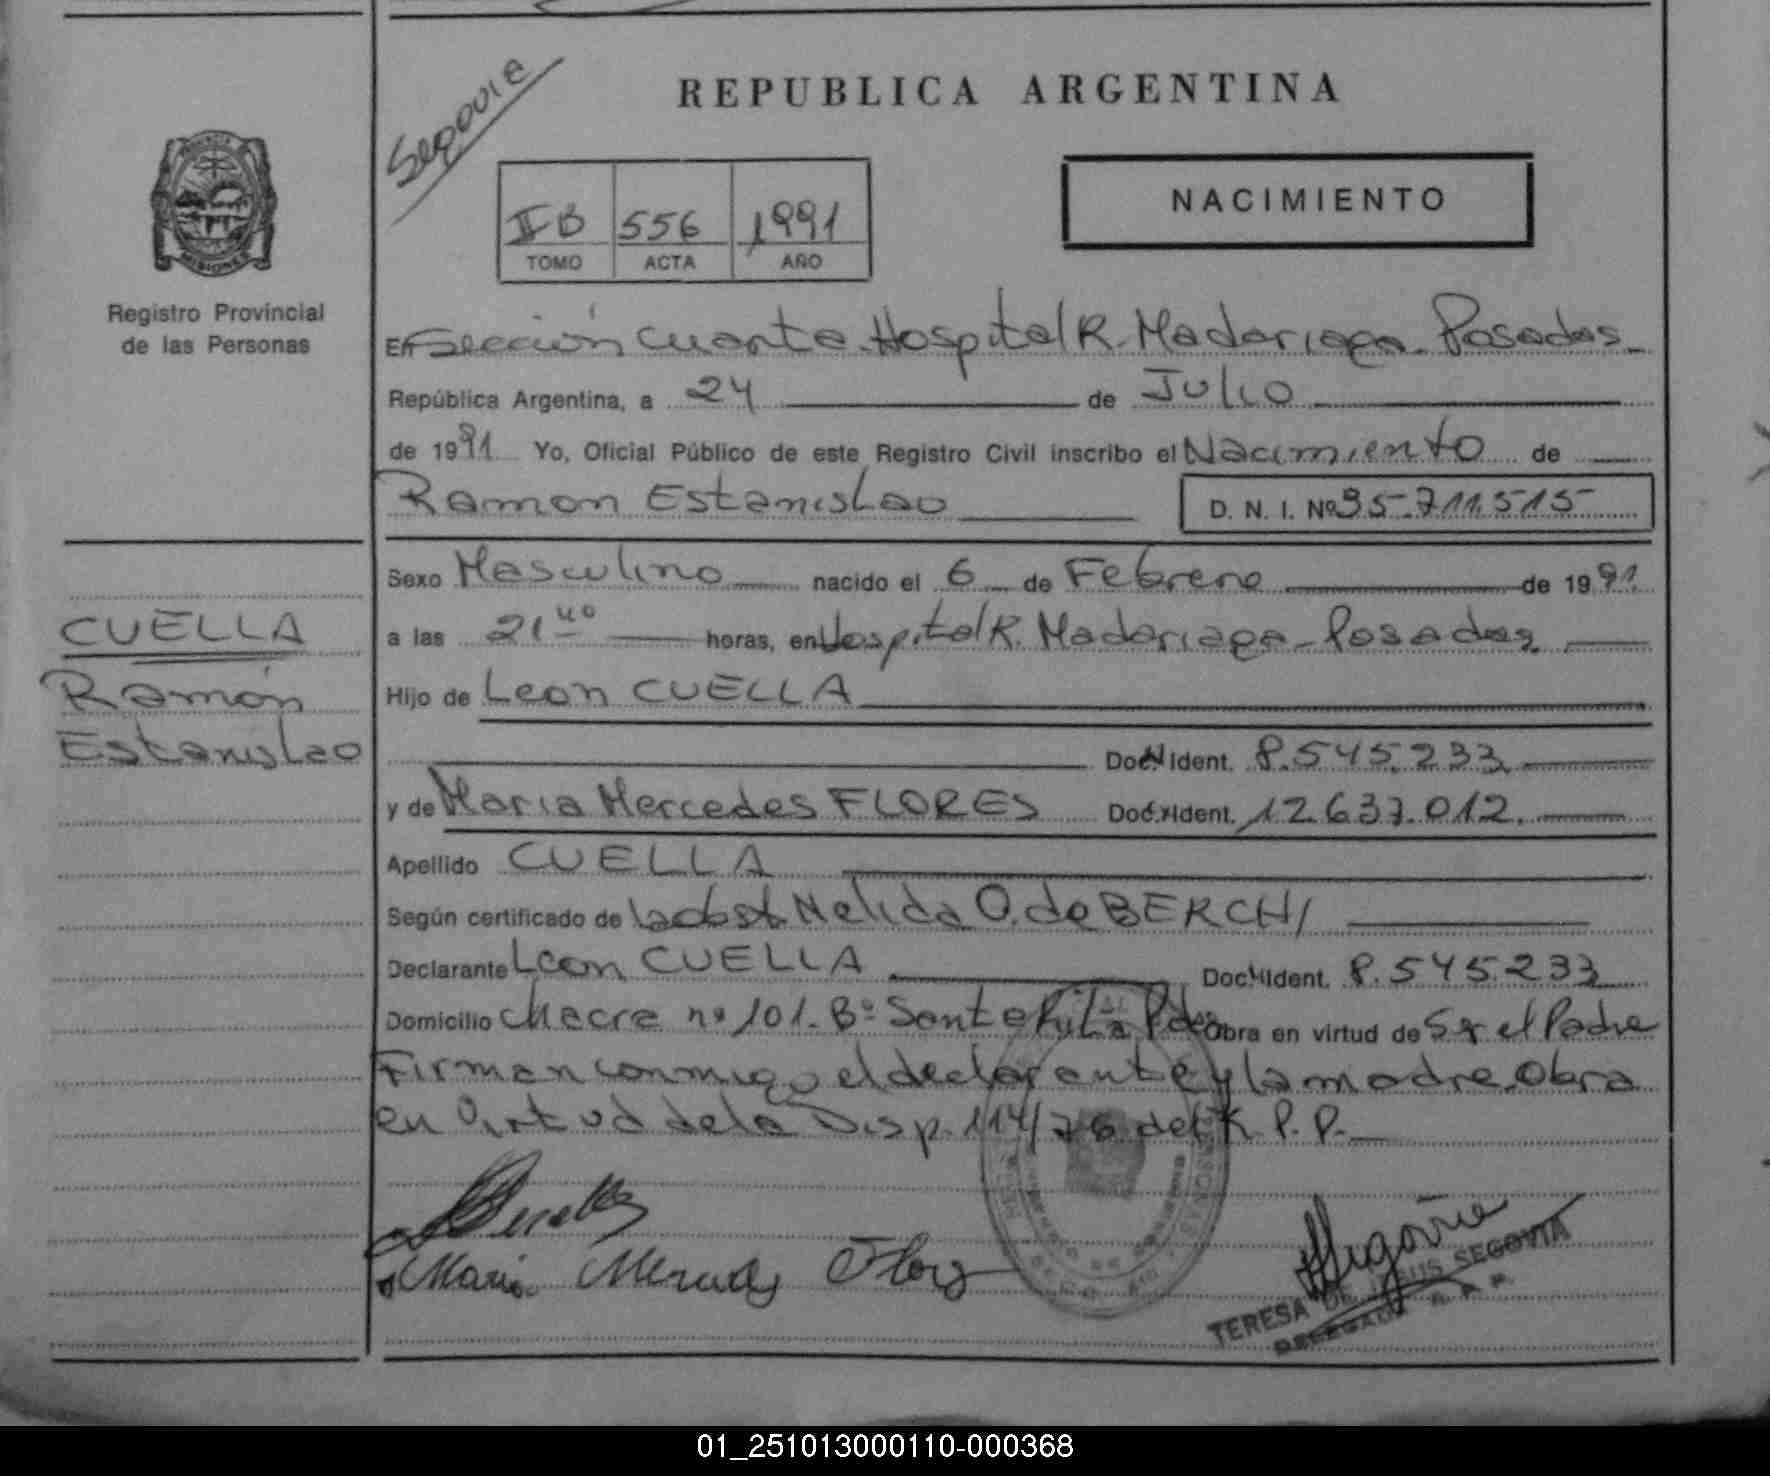 Segovia
REPUBLICA ARGENTINA
NACIMIENTO
II B 556 1991
TOMO ACTA AÑO
MISIONES
Registro Provincial
de las Personas
En Sección Cuarta Hospital R. Madariaga Posadas
República Argentina, a 24 de Julio
de 1991 Yo, Oficial Público de este Registro Civil inscribo el Nacimiento de
Ramon Estanislao D. N. I. Nº 35.711.515
Sexo Masculino nacido el 6 de Febrero de 1991
CUELLA
a las 21 40 horas, en Hospital R. Madariaga - Posadas
Ramón
Hijo de Leon CUELLA
Estanislao
Doc. N Ident. 8.545.233
y de Maria Mercedes FLORES Doc. N Ident. 12.637.012.
Apellido CUELLA
Según certificado de la obst. Nelida O. de BERCHI
Declarante Leon CUELLA Doc. N Ident. 8.545.233
Domicilio Chacra nº 101. Bº Santa Rita Pdas Obra en virtud de Ser el Padre
Firman conmigo el declarante y la madre. Obra
en Virtud de la Disp. 114/76 del R. P. P.
Cuella
Maria Mercedes Flores
Segovia
TERESA DE JESUS SEGOVIA
DELEGADA R. P. P.
01_251013000110-000368